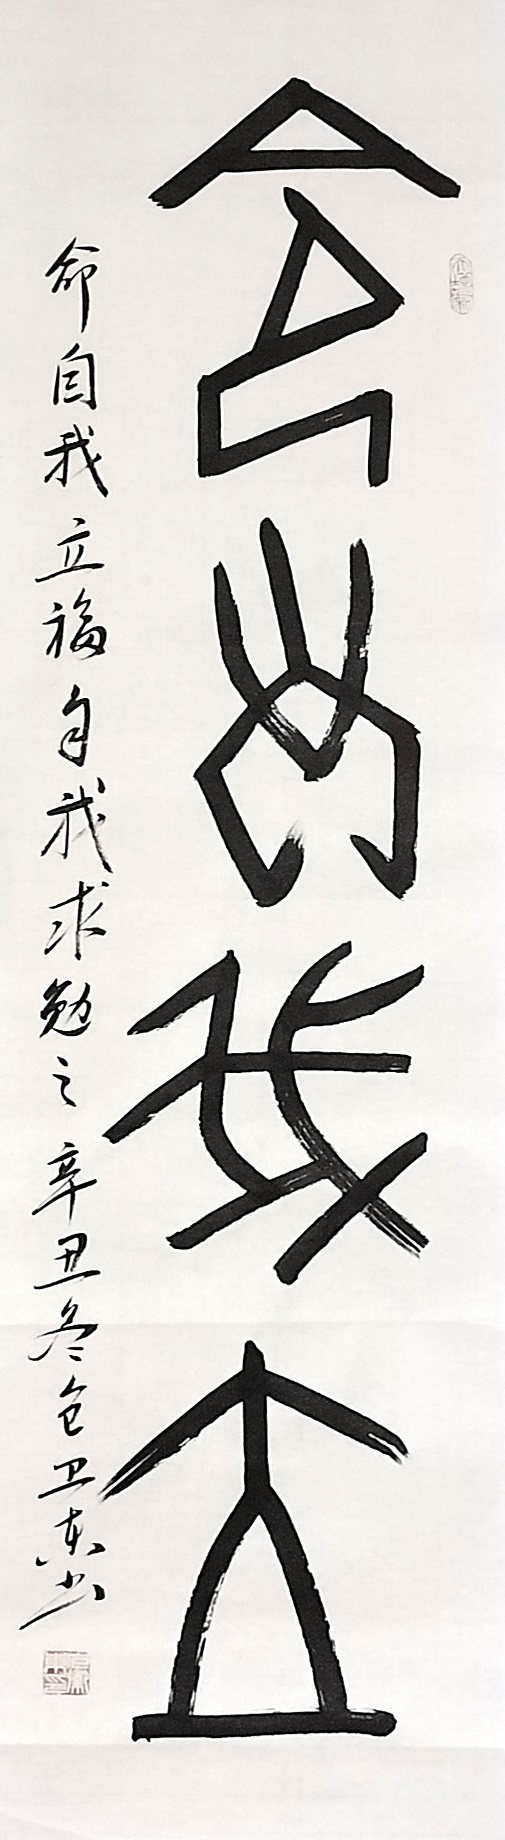 命自我立
命自我立福自我求勉之辛丑冬卫东书